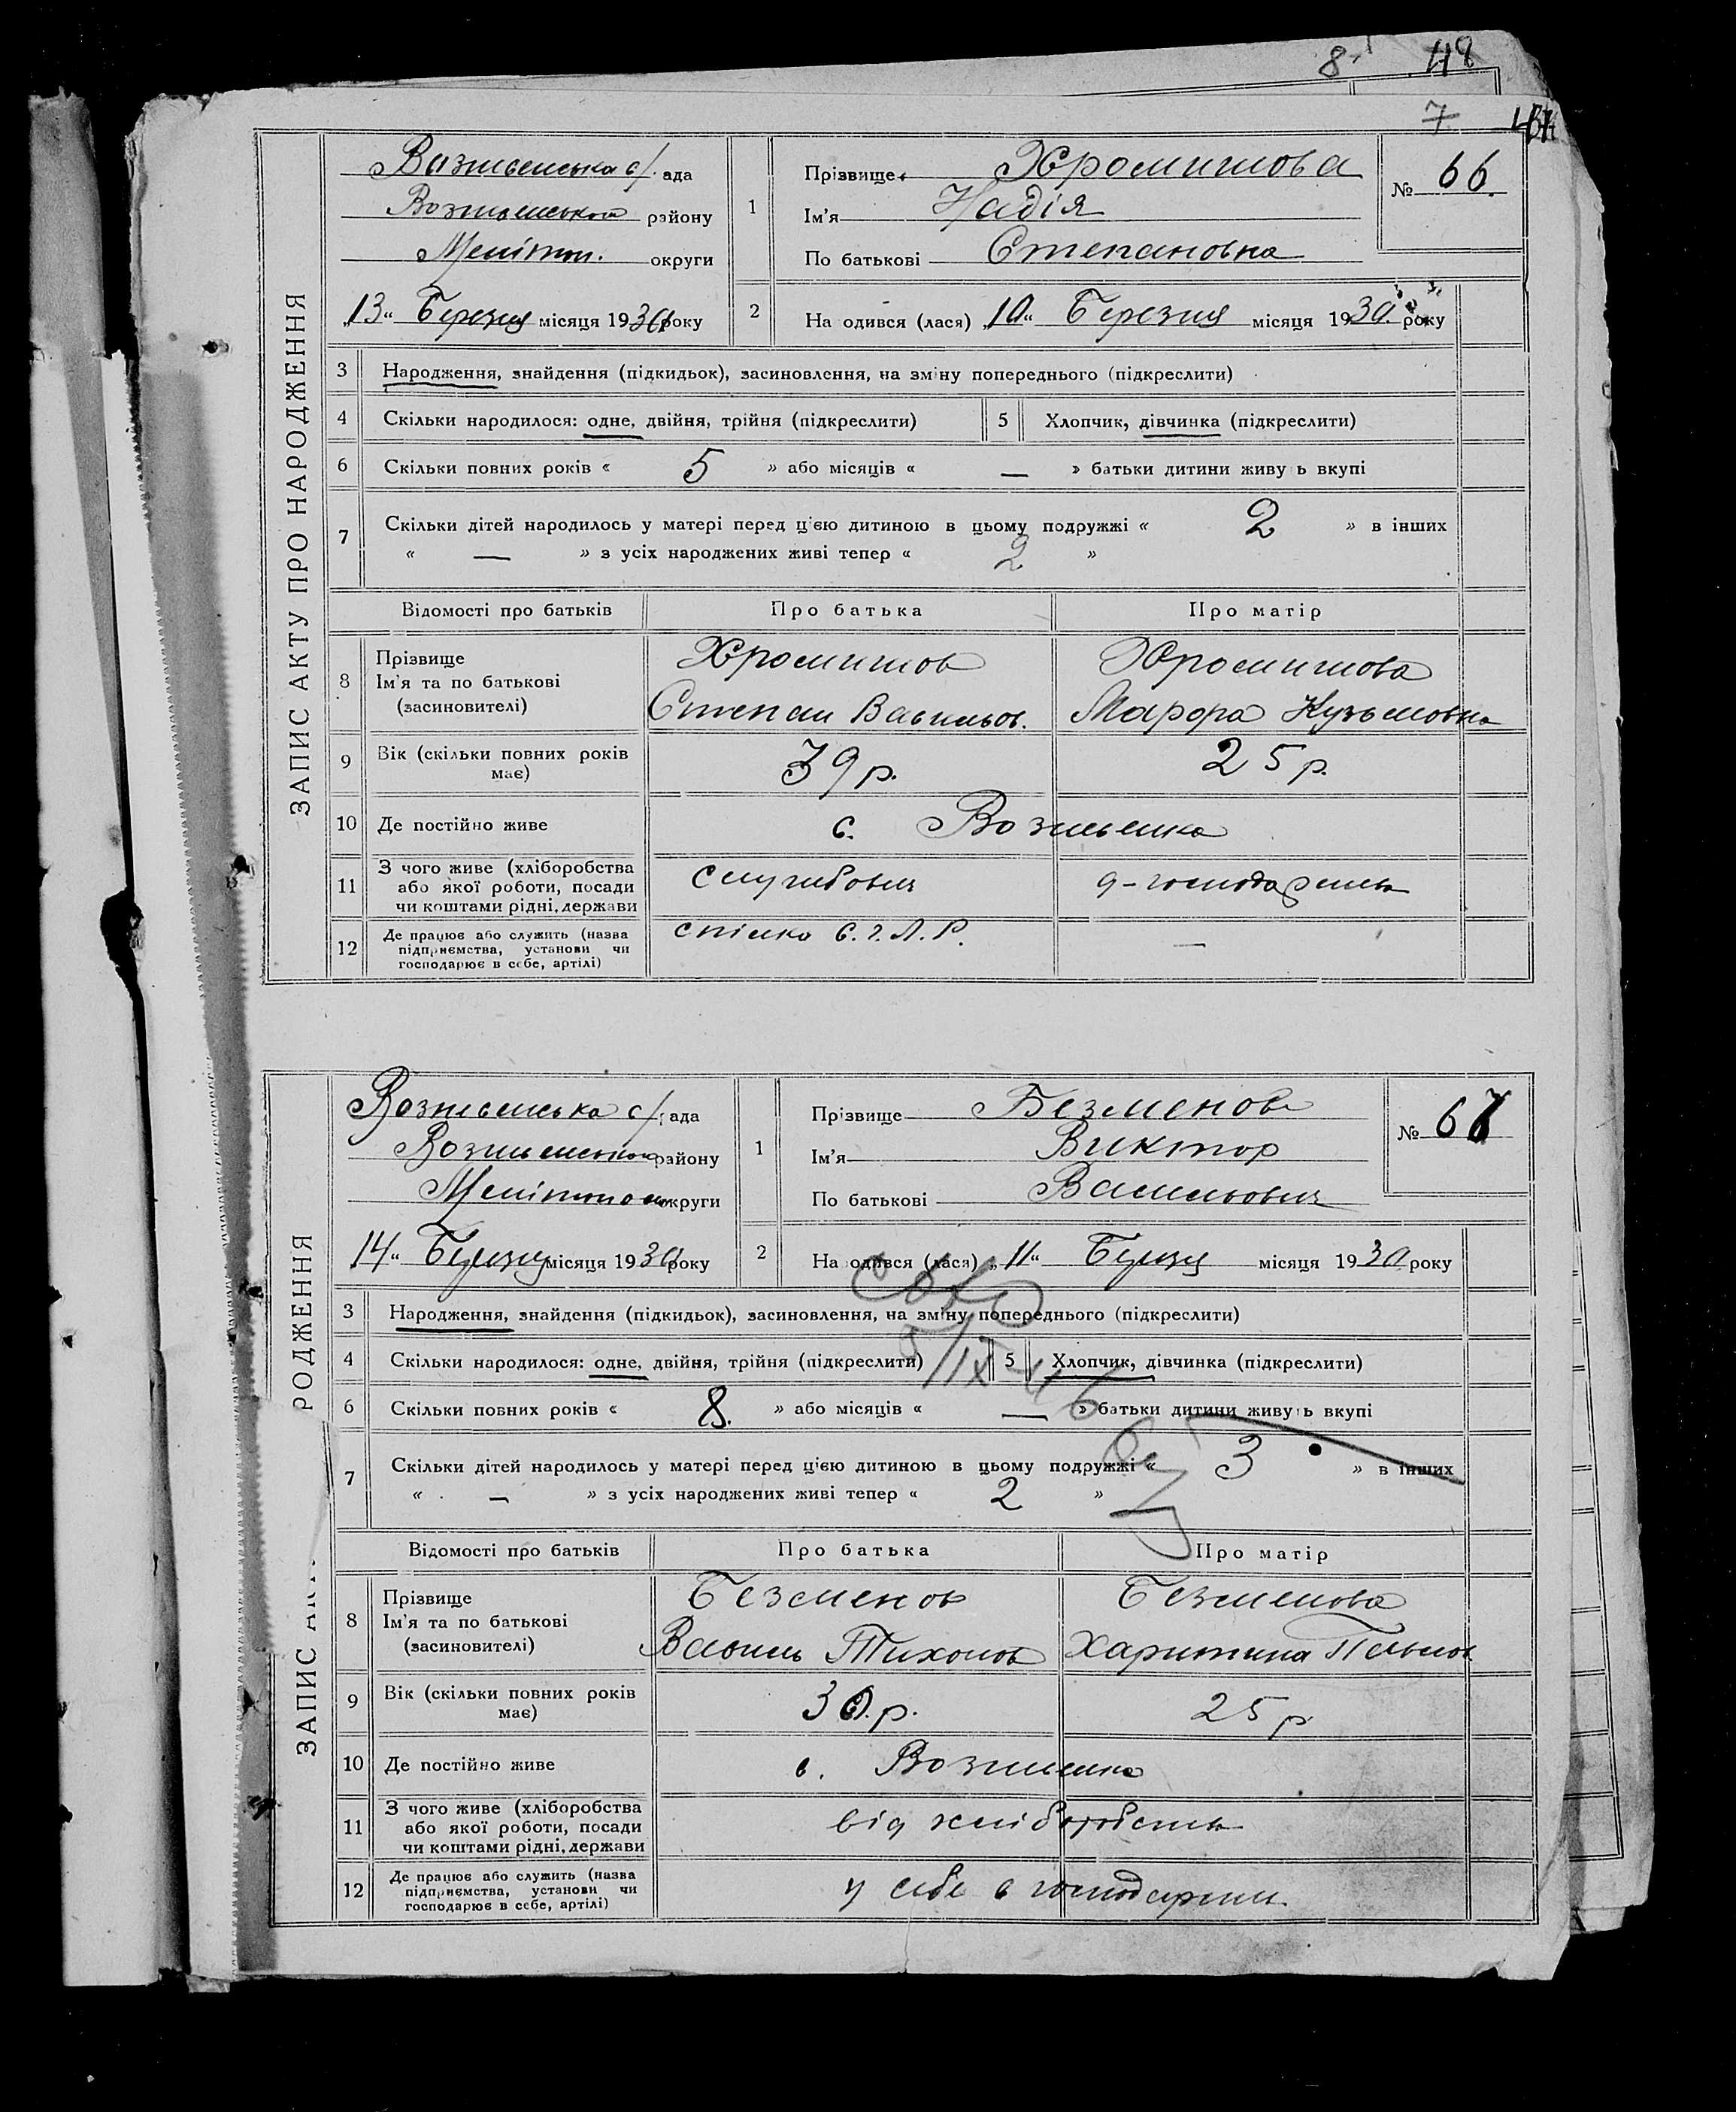 8 48
7
ЗАПИС АКТУ ПРО НАРОДЖЕННЯ
Вознесенська с/ ада
Вознесенського району
Мелітоп. округи
„13“ Березня місяця 1930 року
1
Прізвище Хромишова
Ім'я Надія
По батькові Степановна
№ 66.
2
На одився (лася) „10“ Березня місяця 1930 року
3 Народження, знайдення (підкидьок), засиновлення, на зміну попереднього (підкреслити)
4 Скільки народилося: одне, двійня, трійня (підкреслити) 5 Хлопчик, дівчинка (підкреслити)
6 Скільки повних років « 5 » або місяців « — » батьки дитини живу ь вкупі
7 Скільки дітей народилось у матері перед цією дитиною в цьому подружжі « 2 » в інших
« — » з усіх народжених живі тепер « 2 »
Відомості про батьків Про батька Про матір
8 Прізвище
Ім'я та по батькові
(засиновителі)
Хромишов
Степан Васильов.
Хромишова
Марфа Кузьмовна
9 Вік (скільки повних років
має)
39 р. 25 р.
10 Де постійно живе с. Вознесенка
11 З чого живе (хліборобства
або якої роботи, посади
чи коштами рідні, держави
службовець
д-господарень
12 Де працює або служить (назва
підприємства, установи чи
господарює в себе, артілі)
спілка С. Г. Л. Р. —
ЗАПИС АК РОДЖЕННЯ
Вознесенська с/ ада
Вознесенського району
Мелітопольськ округи
14“ Березня місяця 1930 року
1
Прізвище Безменов
Ім'я Виктор
По батькові Васильович
№ 67
2
На одився (лася) „11“ Березня місяця 1930 року
3 Народження, знайдення (підкидьок), засиновлення, на зміну попереднього (підкреслити)
4 Скільки народилося: одне, двійня, трійня (підкреслити) 5 Хлопчик, дівчинка (підкреслити)
5/IX-46
6 Скільки повних років « 8. » або місяців « — » батьки дитини живу ь вкупі
7 Скільки дітей народилось у матері перед цією дитиною в цьому подружжі « 3 » в інших
« — » з усіх народжених живі тепер « 2 »
Відомості про батьків Про батька Про матір
8 Прізвище
Ім'я та по батькові
(засиновителі)
Безменов
Василь Тихонов
Безменова
Харитина Павлов
9 Вік (скільки повних років
має)
30 р. 25 р
10 Де постійно живе с. Вознесенка
11 З чого живе (хліборобства
або якої роботи, посади
чи коштами рідні, держави
від хліборобства
12 Де працює або служить (назва
підприємства, установи чи
господарює в себе, артілі)
у себе в господарстві